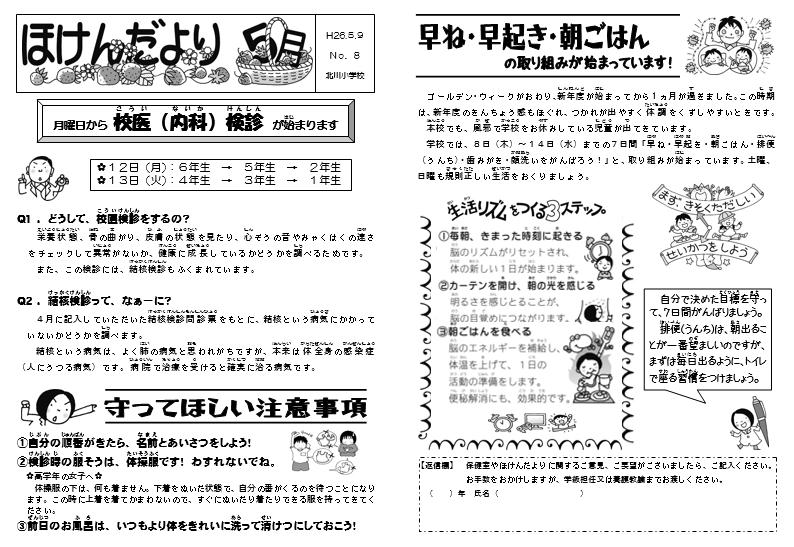 ほけんだより 5月
H26.5.9
No. 8
北川小学校
月曜日から 校医（内科）検診 が始まります
✿12日（月）：6年生 → 5年生 → 2年生
✿13日（火）：4年生 → 3年生 → 1年生
Q1．どうして、校医検診をするの？
栄養状態、骨の曲がり、皮膚の状態を見たり、心ぞうの音やみゃくはくの速さ
をチェックして異常がないか、健康に成長しているかどうかを調べるためです。
また、この検診には、結核検診もふくまれています。
Q2．結核検診って、なぁーに？
4月に記入していただいた結核検診問診票をもとに、結核という病気にかかって
いないかどうかを調べます。
結核という病気は、よく肺の病気と思われがちですが、本来は体全身の感染症
（人にうつる病気）です。病院で治療を受けると確実に治る病気です。
守ってほしい注意事項
①自分の順番がきたら、名前とあいさつをしよう！
②検診時の服そうは、体操服です！わすれないでね。
✿高学年の女子へ✿
体操服の下は、何も着ません。下着をぬいだ状態で、自分の番がくるのを待つことになり
ます。この時に上着を着てかまわないので、すぐにぬいだり着たりできる服を持ってきてくだ
さい。
③前日のお風呂は、いつもより体をきれいに洗って清けつにしておこう！
早ね・早起き・朝ごはん
の取り組みが始まっています！
ゴールデン・ウィークがおわり、新年度が始まってから1ヵ月が過ぎました。この時期
は、新年度のきんちょう感もほぐれ、つかれが出やすく体調をくずしやすいときです。
本校でも、風邪で学校をお休みしている児童が出てきています。
学校では、8日（木）～14日（水）までの7日間「早ね・早起き・朝ごはん・排便
（うんち）・歯みがき・顔洗いをがんばろう！」と、取り組みが始まっています。土曜、
日曜も規則正しい生活をおくりましょう。
生活リズムをつくる3ステップ。
①毎朝、きまった時刻に起きる
脳のリズムがリセットされ、
体の新しい1日が始まります。
②カーテンを開け、朝の光を感じる
明るさを感じとることが、
脳の目覚めにつながります。
③朝ごはんを食べる
脳のエネルギーを補給し、
体温を上げて、1日の
活動の準備をします。
便秘解消にも、効果的です。
まず、きそくただしい
せいかつをしよう
自分で決めた目標を守っ
て、7日間がんばりましょう。
排便(うんち)は、朝出るこ
とが一番望ましいのですが、
まずは毎日出るように、トイレ
で座る習慣をつけましょう。
【返信欄】 保健室やほけんだよりに関するご意見、ご要望がございましたら、ご記入ください。
お手数をおかけしますが、学級担任又は養護教諭までお渡しください。
（ ）年 氏名（ ）